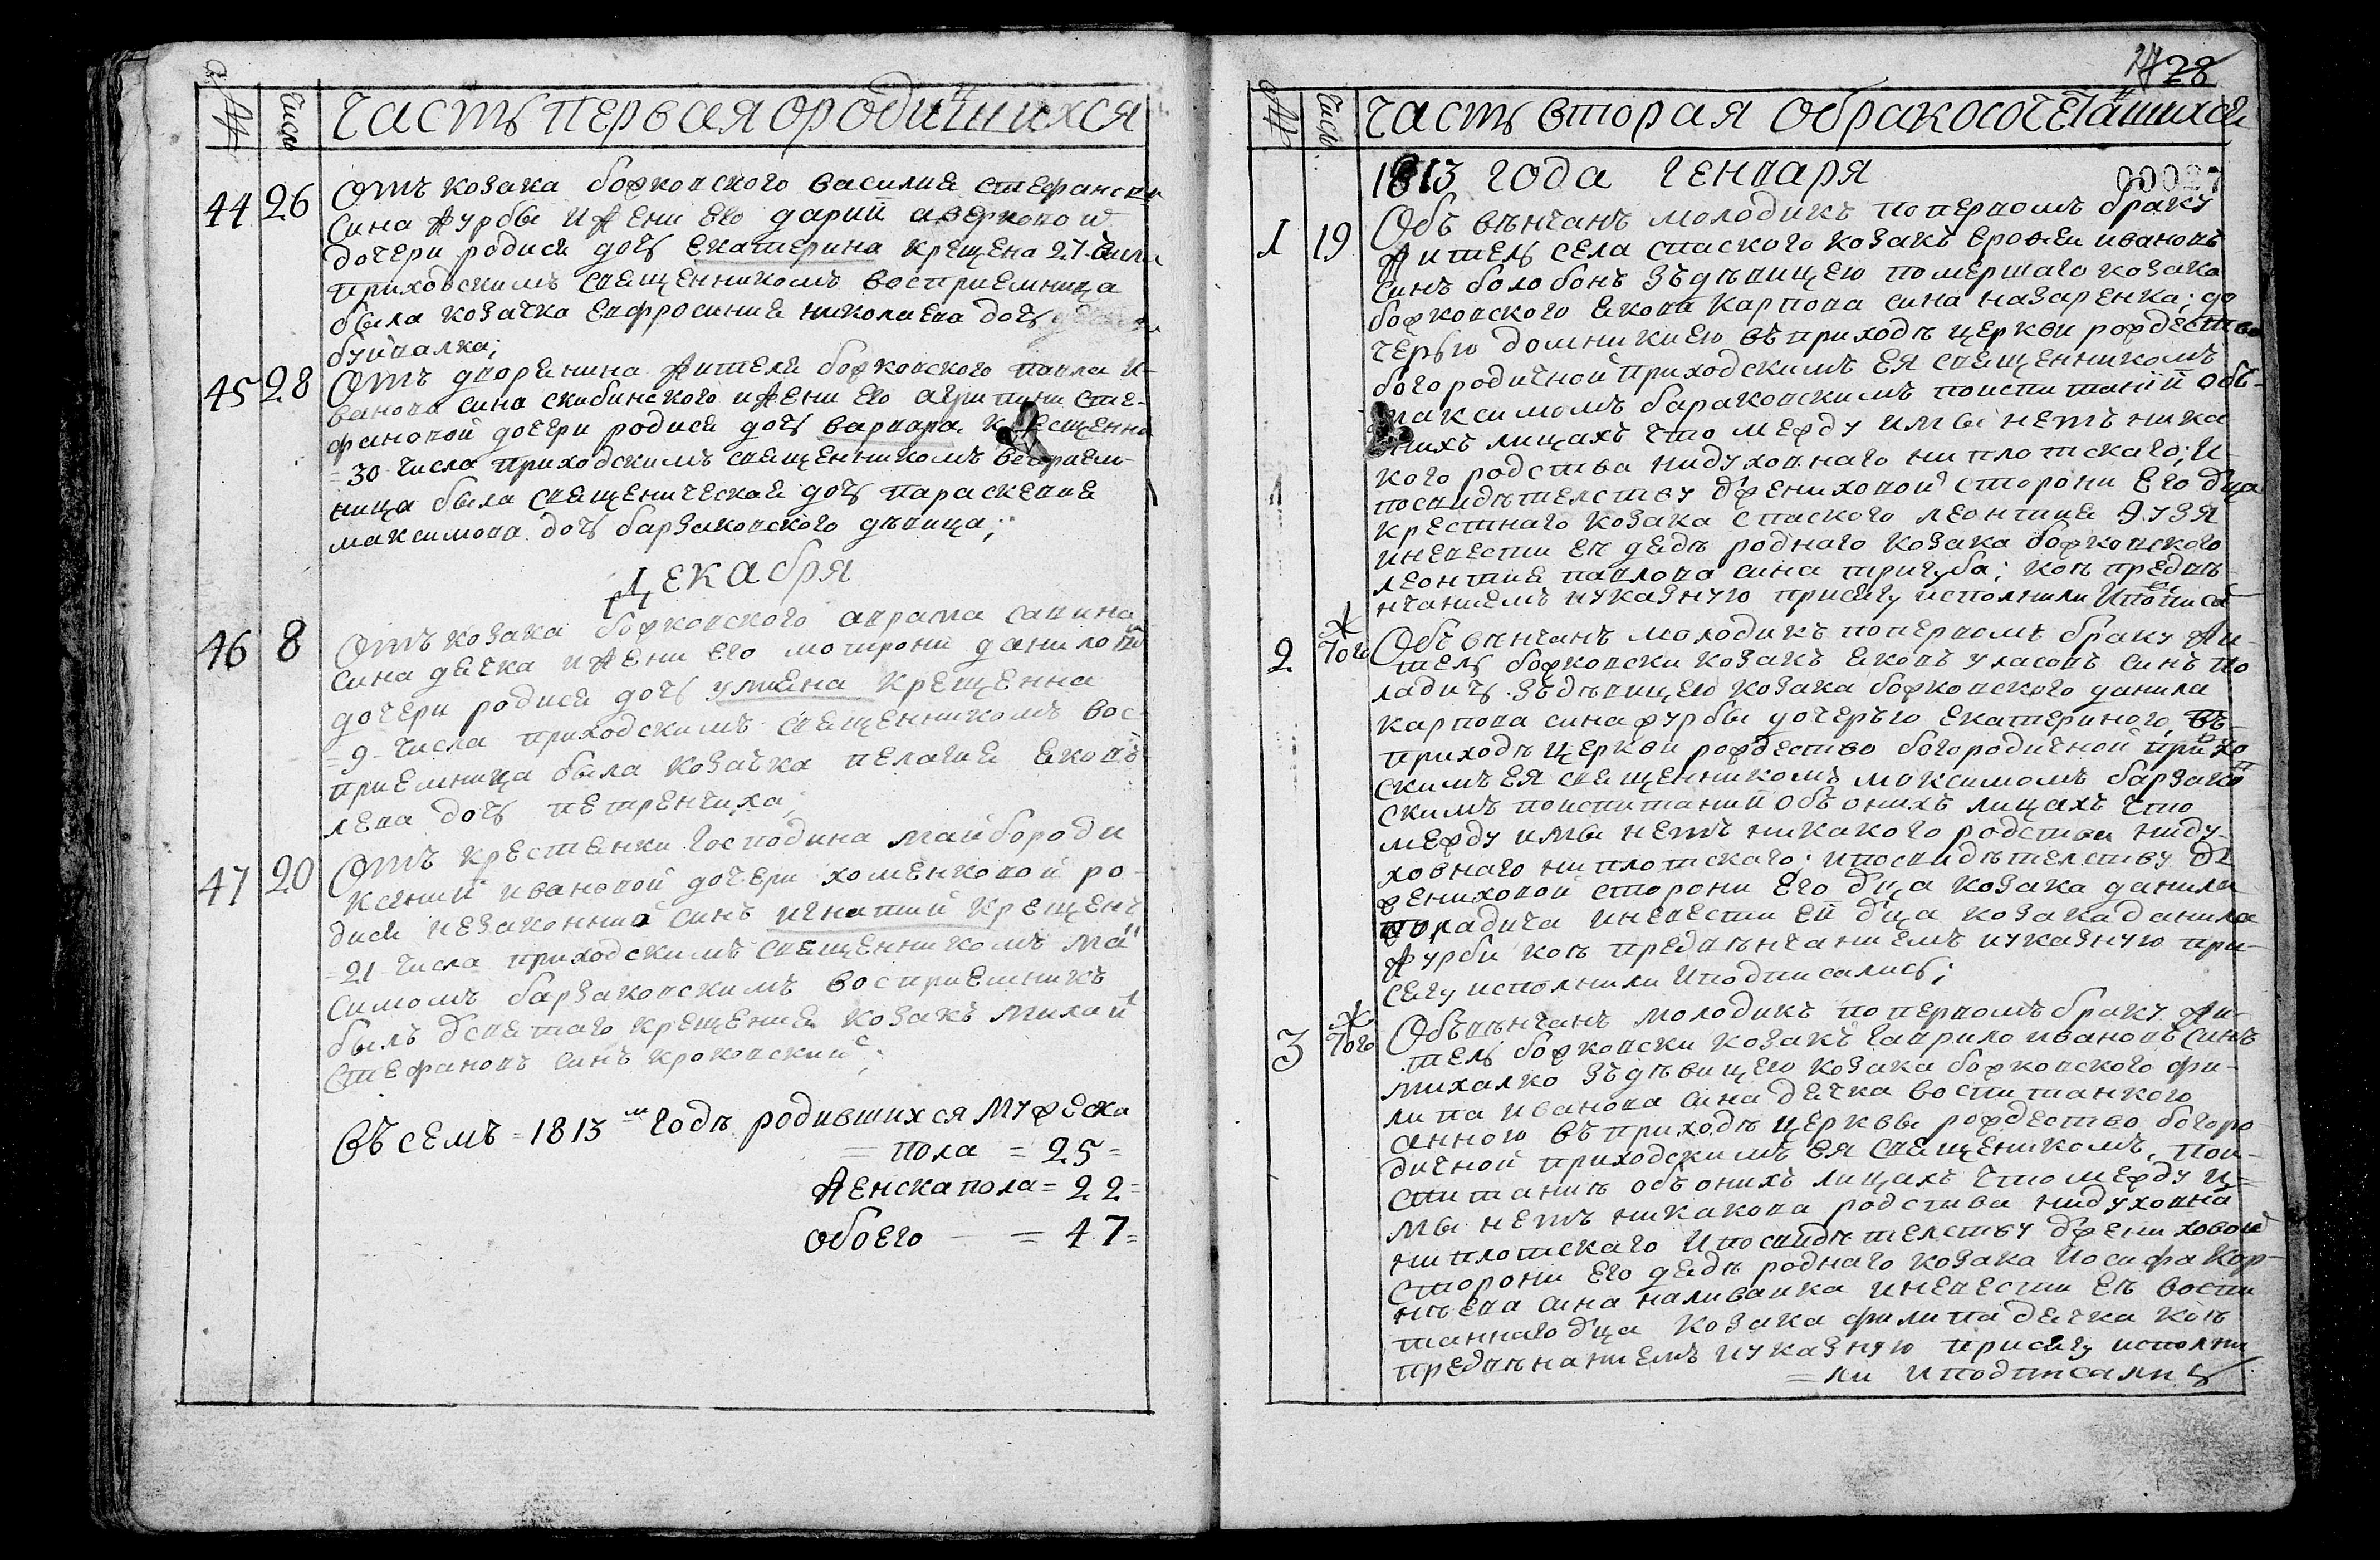 № Число Часть первая о родившихся
44 26 Отъ козака божковского василия стефанова
сина журбы и жени его дарии аверковой
дочери родися дочъ екатерина крещена 27. числа
приходскимъ священникомъ восприемница
была козачка евфросиния николаева дочъ
буйвалка;
45 28 Отъ дворянина жителя божковского павла и-
ванова сина скибинского и жени его агрипини сте-
фановой дочери родися дочъ варвара крещенна
=30 числа приходскимъ священникомъ восприем-
ница была священическая дочъ параскевия
максимова дочъ барзаковского дѣвица;
Декабря
46 8 Отъ козака божковского аврама савина
сина дячка и жени его мотрони даниловой
дочери родися дочъ улияна крещенна
=9 числа приходскимъ священникомъ вос-
приемница была козачка пелагия яковъ-
лева дочъ петренчиха;
47 20 Отъ крестянки господина майбороди
ксении ивановой дочери хоменковой ро-
дися незаконний синъ игнатий крещенъ
=21 числа приходскимъ священникомъ мак-
симомъ барзаковскимъ восприемникъ
былъ от святаго крещения козакъ михайло
стефановъ синъ кроковский;
въ семъ =1813 м годѣ родившихся мужеска
= пола = 25 =
женска пола = 22 =
обоего = 47 =
28
№ Число Часть вторая о бракосочетавшихся
1813 года генваря 00027
1 19 Объ вѣнчанъ молодикъ по первомъ браку
житель села спаского козакъ ерофеи ивановъ
синъ болобонъ зъ дѣвицею помершаго козака
божковского якова карпова сина назаренка; до
черью домникиею въ приходѣ церкви рождество
богородичной приходскимъ ея священникомъ
максимомъ бараковскимъ по испитании объ-
онихъ лицахъ что между имы нетъ ника
кого родства ни духовнаго ни плотскаго; и
по свидѣтелству от жениховой сторони его отца
крестнаго козака спаского леонтия гузя
и невести ея дядѣ роднаго козака божковского
леонтия павлова сина тригуба; коѣ предвѣ-
нчаниемъ и указную присягу исполнили и подписа
2 Того ж Объ вѣнчанъ молодикъ по первомъ браку жи-
тель божковски козакъ яковъ уласовъ синъ по
ладичъ зъ дѣвицею козака божковского данила
карпова сина журбы дочерью екатериною, въ-
приходѣ церкви рождество богородичной прихо
скимъ ея священникомъ максимомъ барзако
скимъ по испитании объ онихъ лицахъ что
между имы нетъ никакого родства ни ду-
ховнаго ни плотскаго; и по свидѣтелству от
жениховой сторони его отца козака данила
поладича и невести ея отца козака данила
журби коѣ предвѣнчаниемъ и указную при-
сягу исполнили и подписались;
3 Того ж Объвѣнчанъ молодикъ по первомъ браку жи-
тель божковски козакъ гаврило ивановъ синъ
михалко зъ дѣвицею козака божковского фи-
липа иванова сина дячка воспитанкою
анною въ приходѣ церквы рождество богоро
дичной приходскимъ ея священикомъ, по и-
спитаниѣ объ онихъ лицахъ что между и=
мы нетъ никакова родства ни духовна
ни плотскаго и по свидѣтелству от жениховой
сторони его дядѣ роднаго козака иосифа кор-
нѣева сина наливайка и невести еѣ воспи
таннаго отца козака филипа дячка коѣ
предвѣнаниемъ и указную присягу исполни
=ли и подписались